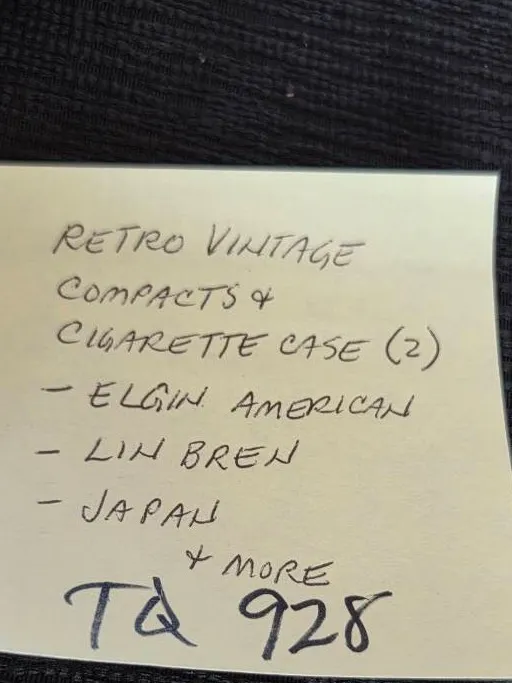 RETRO VINTAGE
COMPACTS &
CIGARETTE CASE (2)
- ELGIN AMERICAN
- LIN BREN
- JAPAN
& MORE
TQ 928